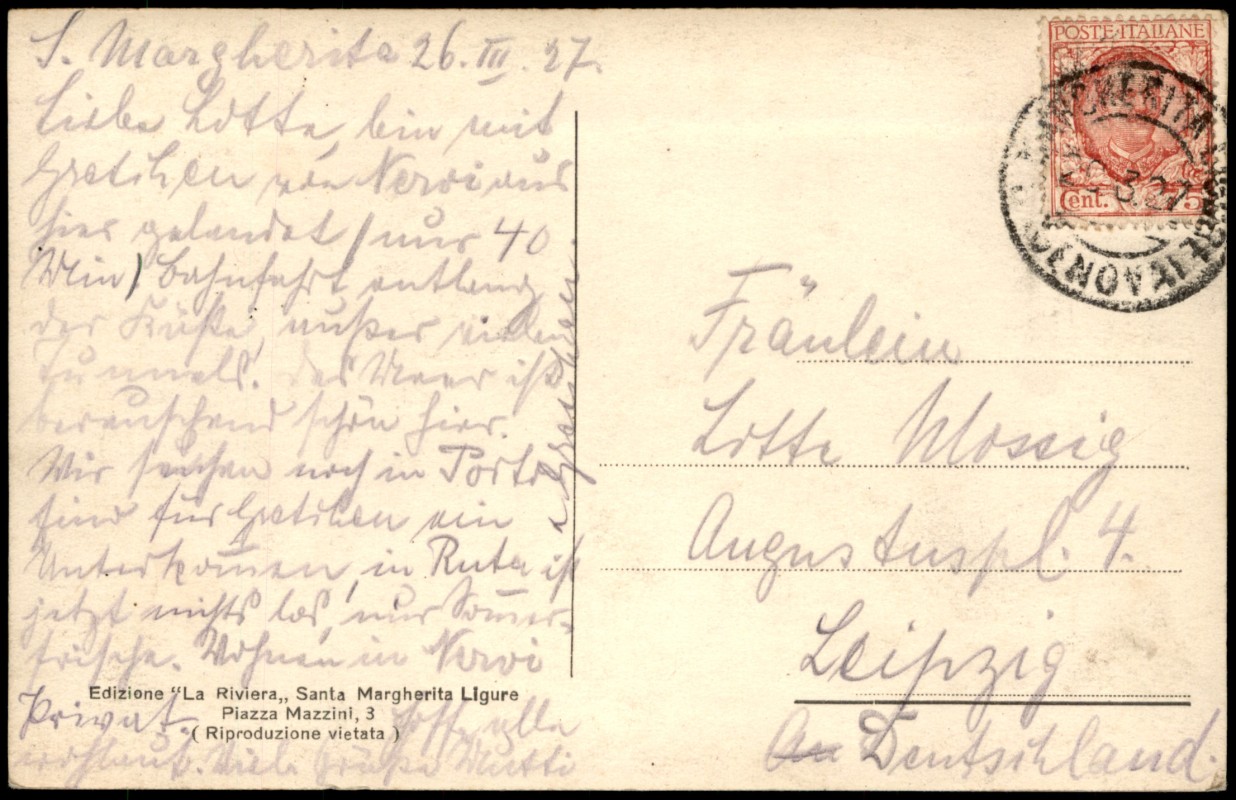 S. Margherita 26. III. 27.
Liebe Lotte, bin mit
Gretchen von Nervi aus
hier gelandet / nur 40
Min) Bahnfahrt entlang
der Küste, außer vielen
Tunnels. Das Meer ist
berauschend schön hier.
Wir suchen noch in Porto
fino für Gretchen ein
Unterkom̅en, in Ruta ist
jetzt nichts los, nur Som̅er-
frische. Wohnen in Nervi
Privat. Hoff. alle
wohlauf. Viele Grüße Mutti
Edizione "La Riviera„ Santa Margherita Ligure
Piazza Mazzini, 3
( Riproduzione vietata )
POSTE·ITALIANE
Cent. 75
3.27
Fräulein
Lotte Mossig
Augustuspl. 4.
Leipzig
Deutschland.